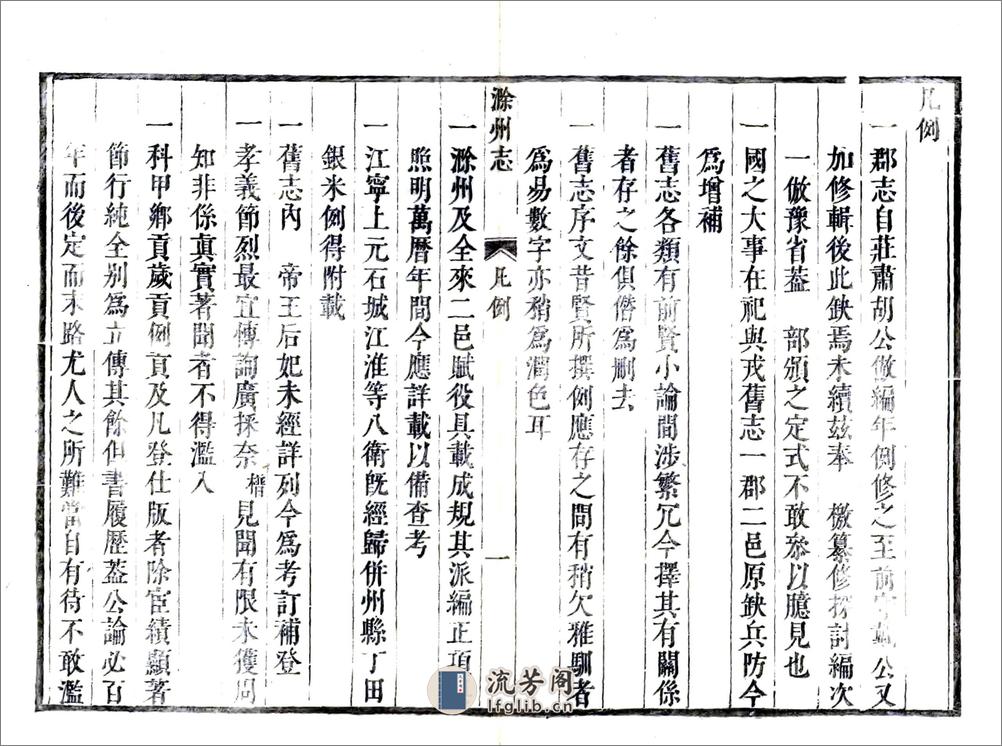 凡例
一郡志自莊肅胡公倣編年例修之至前
公又
加修輯後此缺焉未續茲奉　檄纂修探討編次
一倣豫省蓋　部頒之定式不敢叅以臆見也
一國之大事在祀與戎舊志一郡二邑原缺兵防今
為增補
一舊志各類有前賢小論間涉繁冗今擇其有關係
者存之餘俱僭為刪去
一舊志序文昔賢所撰例應存之間有稍欠雅馴者
為易數字亦稍為潤色耳
滁州志　凡例　一
一滁州及全來二邑賦役具載成規其派編正項
照明萬曆年間今應詳載以備查考
一江寧上元石城江淮等八衛旣經歸併州縣丁田
銀米例得附載
一舊志內　帝王后妃未經詳列今為考訂補登
一孝義節烈最宜傳詢廣採奈稽見聞有限未獲周
知非係眞實著聞者不得濫入
一科甲鄉貢歲貢例貢及凡登仕版者除宦績顯著
節行純全別為立傳其餘但書履歷蓋公論必百
年而後定而末路尤人之所難當自有待不敢濫
流芳阁
lfglib.cn